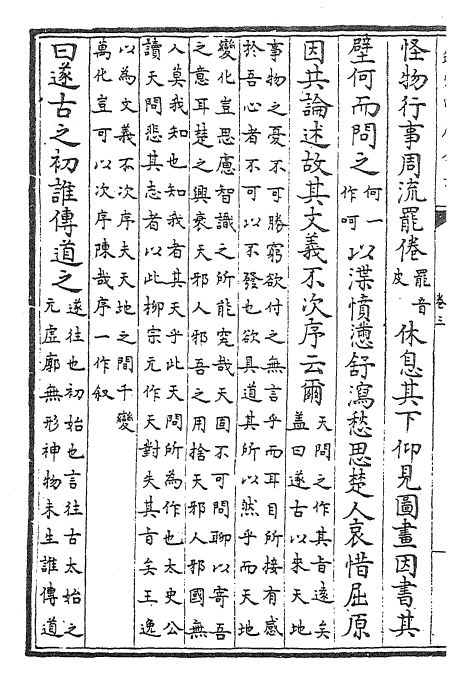 怪物行事周流罷倦罷音皮休息其下仰見圖畫因書其
壁何而問之何一作呵以渫憤懣舒瀉愁思楚人哀惜屈原
因共論述故其文義不次序云爾天問之作其旨遠矣
蓋曰遂古以來天地
事物之憂不可勝窮欲付之無言乎而耳目所接有感
於吾心者不可以不發也欲具道其所以然乎而天地
變化豈思慮智識之所能究哉天固不可問聊以寄吾
之意耳楚之興衰天邪人邪吾之用捨天邪人邪國無
人莫我知也知我者其天乎此天問所為作也太史公
讀天問悲其志者以此柳宗元作天對失其旨矣王逸
以為文義不次序夫天地之間千變
萬化豈可以次序陳哉序一作叙
曰遂古之初誰傳道之遂往也初始也言往古太始之
元虛廓無形神物未生誰傳道
卷三